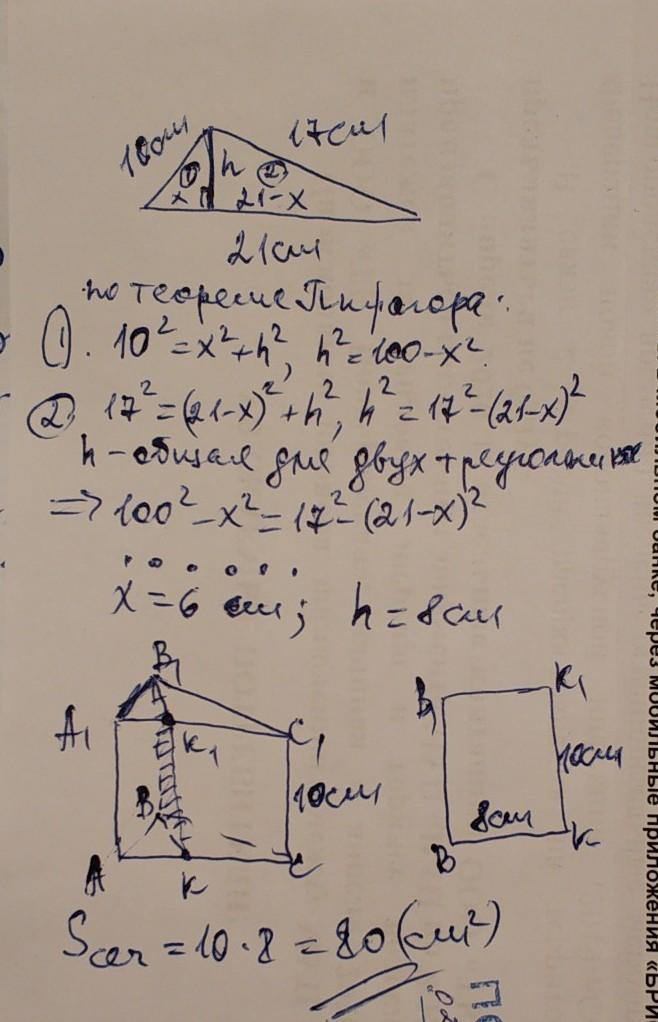 10см 17см
① h ②
x 21-x
21см
по теореме Пифагора:
①. 10² = x² + h², h² = 100 - x².
② 17² = (21-x)² + h², h² = 17² - (21-x)²
h - общая для двух треугольников
=> 100² - x² = 17² - (21-x)²
......
x = 6 см; h = 8 см
B₁
A₁ K₁ C₁
B 10см
A K C
B₁ K₁
10см
8см
B K
Sсеч = 10 · 8 = 80 (см²)
мобильные приложения «БРИ